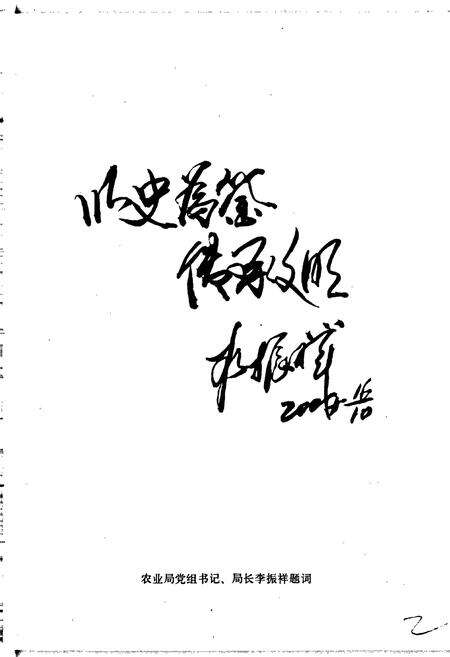 以史为鉴
传承文明
李振祥
农业局党组书记、局长李振祥题词